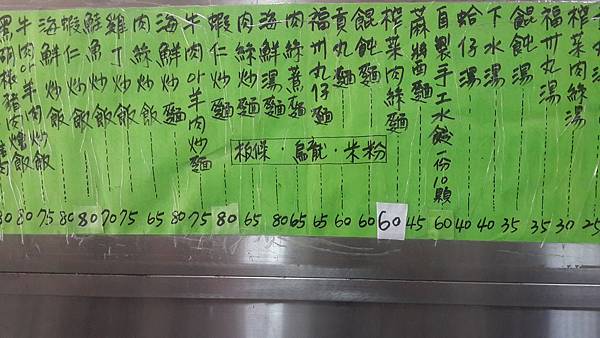 榨菜肉絲湯
福州丸湯
餛飩湯
下水湯
蛤仔湯
自製手工水餃一份10顆
麻醬麵
榨菜肉絲麵
餛飩麵
貢丸麵
福州丸仔麵
肉絲蒸麵
海鮮湯麵
肉絲炒麵
蝦仁炒麵
牛肉or羊肉炒麵
海鮮炒麵
肉絲炒飯
雞丁炒飯
魚炒飯
蝦仁炒飯
海鮮炒飯
牛肉or羊肉炒飯
黑胡椒豬肉燴飯
板條·烏龍·米粉
80 80 75 80 80 70 75 65 80 75 80 65 80 65 65 60 60 60 45 60 40 40 35 35 30 25